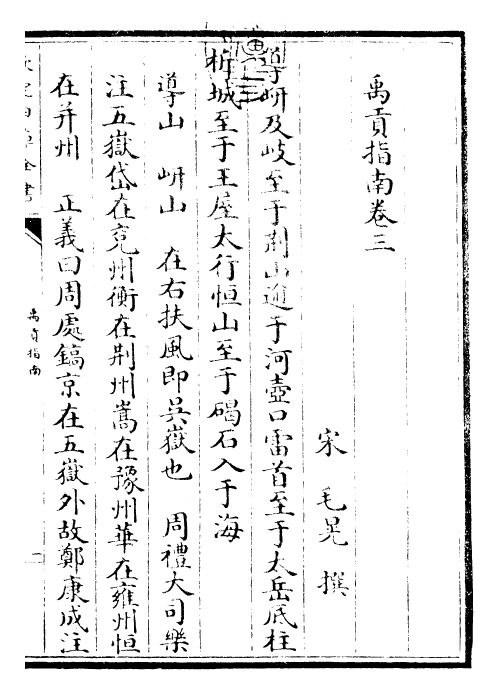 禹貢指南卷三
宋 毛晃 撰
導岍及岐至于荆山逾于河壺口雷首至于太岳底柱
析城至于王屋太行恒山至于碣石入于海
導山 岍山 在右扶風即吳嶽也 周禮大司樂
注五嶽岱在兖州衡在荆州嵩在豫州華在雍州恒
在并州 正義曰周處鎬京在五嶽外故鄭康成注
禹貢指南